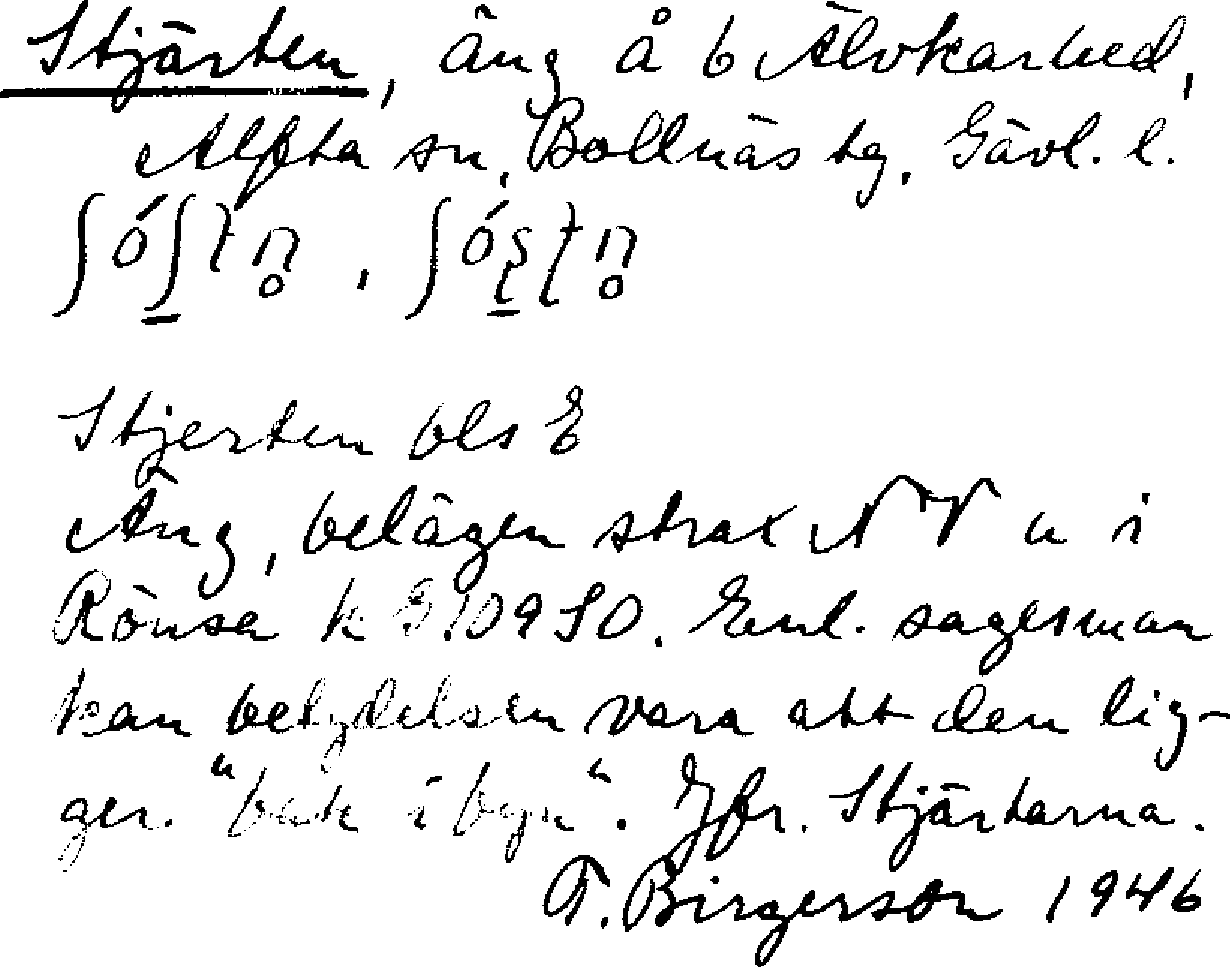 Stjärten, äng å 6 Älvkarhed,
Alfta sn, Bollnäs tg, Gävl. l.
Stjerten bls E
Äng, belägen strax NV u i
Rönsa k E109SO. Enl. sagesman
kan betydelsen vara att den lig-
ger "bak i byn". Jfr. Stjärtarna.
T. Birgerson 1946